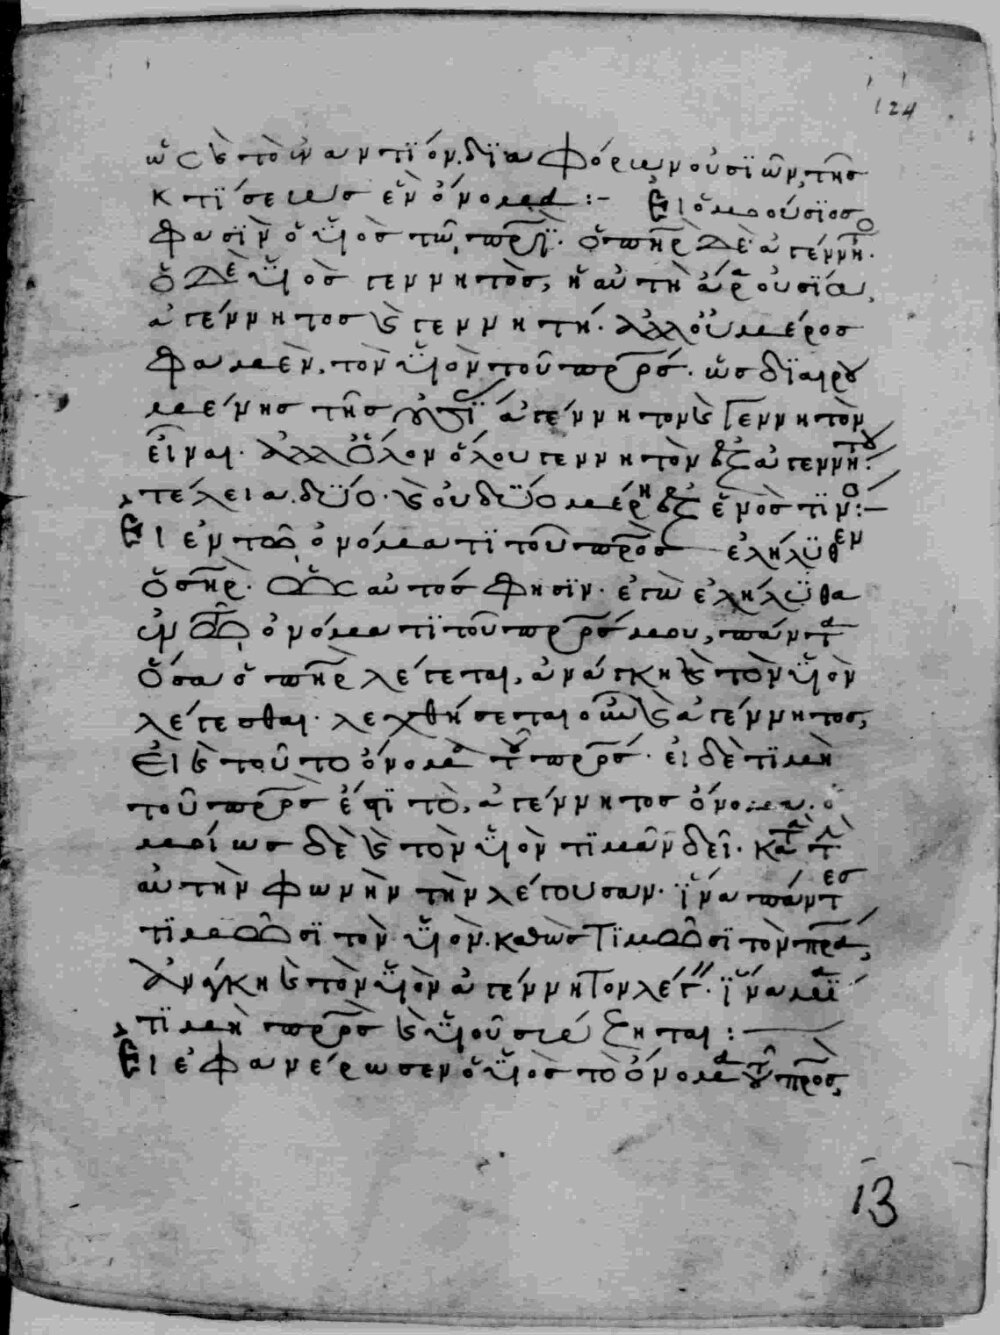 124
ὥς κ τὸ ἐναντίον. διαφόρων οὐσιῶν, τῆς
κτίσεως ἓν ὄνομα :- Εἰ ὁμοούσιος
φασὶν ὁ υἱὸς τῶ πρϊ. ὁ πηρ δὲ ἀγέννητο.
ὁ δὲ υἱὸς γεννητὸς, ἡ αὐτὴ ἄρα οὐσία,
ἀγέννητος κ γεννητή. ἀλλ' οὐ μέρος
φαμὲν. τὸν υἱὸν τοῦ πρς. ὡς διαιρου
μένης τῆς ἀγέννητον κ γεννητὸν
εἶναι. ἀλλ' ὅλον ὅλου γεννητὸν ἐξ ἀγεννήτου.
τέλεια δύο. κ οὐ δύο μέρη ἐξ ἑνός τινο:-
Εἰ ἐν τῶ ὀνόματι τοῦ πρς ἐλήλυθεν
ὁ σηρ. ὡς αὐτός φησιν. ἐγὼ ἐλήλυθα
ἐν τῶ ὀνόματι τοῦ πρς μου, πάντα
ὅσα ὁ πηρ λέγεται, ἀνάγκη κ τὸν υἱὸν
λέγεσθαι. λεχθήσεται οὖν κ ἀγέννητος,
εἰ κ τοῦτο ὄνομα τοῦ πρς. εἰ δὲ τιμὴ
τοῦ πρς ἐστὶ τὸ, ἀγέννητος ὄνομα. ὁ
μοίως δὲ κ τὸν υἱὸν τιμᾶν δεῖ. κατὰ τὴν
αὐτὴν φωνὴν τὴν λέγουσαν. ἵνα πάντες
τιμῶσι τὸν υἱὸν. καθὼς τιμῶσι τὸν πρα,
ἀνάγκη κ τὸν υἱὸν ἀγέννητον λέγειν. ἵνα μία
τιμὴ πρς κ υἱοῦ σώζηται :-
Εἰ ἐφανέρωσεν ὁ υἱὸς τὸ ὄνομα τοῦ πρς,
13